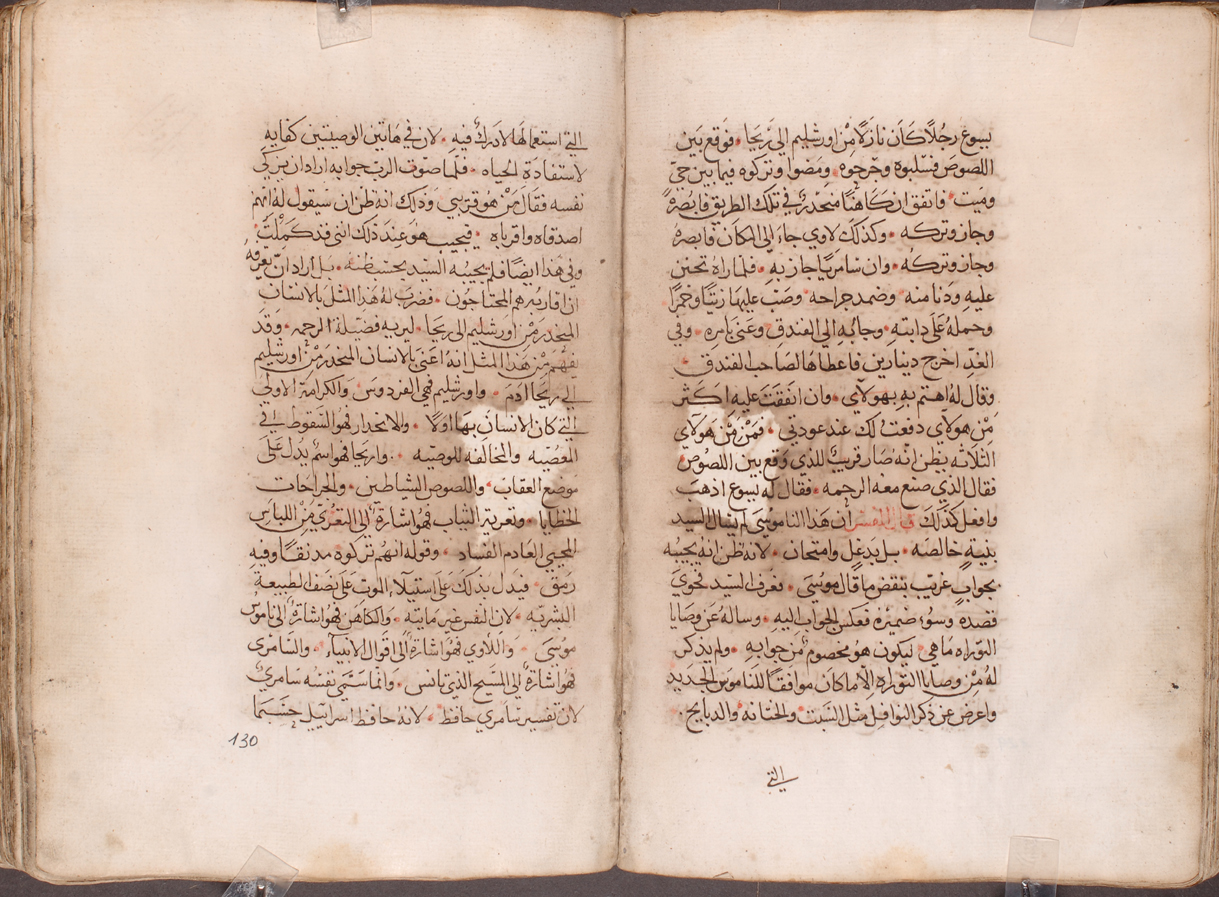 يسوع رجلاً كان نازلاً من اورشليم الي ريحا • فوقع بين
اللصوص فسلبوه وجرحوه • ومضوا وتركوه فيما بين حيّ
وميت • فاتفق ان كاهنًا منحدر في تلك الطريق فابصره
وجاز وتركه • وكذلك لاوي جاء الى المكان فابصره
وجاز وتركه • وان سامريًا جاز به • فلما راه تحنن
عليه ودنا منه • وضمد جراحه • وصب عليها زيتًا وخمرًا
وحمله على دابته • وجا به الي الفندق وعنى بامره • وفي
الغد اخرج دينارين فاعطاها لصاحب الفندق •
وقال له اهتم به بهولاي • وان انفقت عليه اكثر
من هولاي دفعت لك عند عودتي • فمن من هولاي
الثلاثه يظن انه صار قريب للذي وقع بين اللصوص
فقال الذي صنع معه الرحمه • فقال له يسوع اذهب
وافعل كذلك قال المفسر ان هذا الناموسي لم يسال السيد
بنية خالصه • بل بدغل وامتحان • لانه ظن انه يجيبه
بجواب غريب ينقض ما قال موسى • فعرف السيد نحوي
قصده وسوء ضميره فعكس الجواب اليه • وساله عن وصايا
التوراه ما هي • ليكون هو مخصوم من جوابه • ولم يذكر
له من وصايا التوراه الا ما كان موافقًا للناموس الجديد
واعرض عن ذكر النوافل مثل السبت • والختانه • والدبايح •
التي
التي استعمالها لا درك فيه • لان في هاتين الوصيتين كفايه
لاستفادة الحياه • فلما صوف الرب جوابه اراد ان يزكي
نفسه فقال من هو قريبي • وذلك انه ظن ان سيقول له انهم
اصدقاه واقرباه • فيجيب هو عند ذلك انني قد كملت
وفي هذا ايضًا فلم يجيبه السيد بحسب ظنه • بل اراد ان يعرفه
ان اقاربه هم المحتاجون • فضرب له هذا المثل بالانسان
المنحدر من اورشليم الى ريحا • ليريه فضيلة الرحمه • وقد
نفهم من هذا المثل انه اعنى بالانسان المنحدر من اورشليم
الي ريحا ادم • واورشليم فهي الفردوس • والكرامة الاولي
التي كان الانسان بها اولاً • والانحدار فهو السقوط في
المعصيه والمخالفه للوصيه • واريحا فهو اسم يدل على
موضع العقاب • واللصوص الشياطين • والجراحات
الخطايا • وتعرية الثياب فهو اشارة الى التعري من اللباس
المحيي العادم الفساد • وقوله انهم تركوه مدنفًا وفيه
رمق • فيدل بذلك على استيلاء الموت على نصف الطبيعة
البشريه • لان النفس غير مايته • والكاهن فهو اشارة الى ناموس
موسى • واللاوي فهو اشارة الى اقوال الانبياء • والسامري
فهو اشارة الي المسيح الذي تانس • وانما سمى نفسه سامري
لان تفسير سامري حافظ • لانه حافظ اسراييل حسبما
130